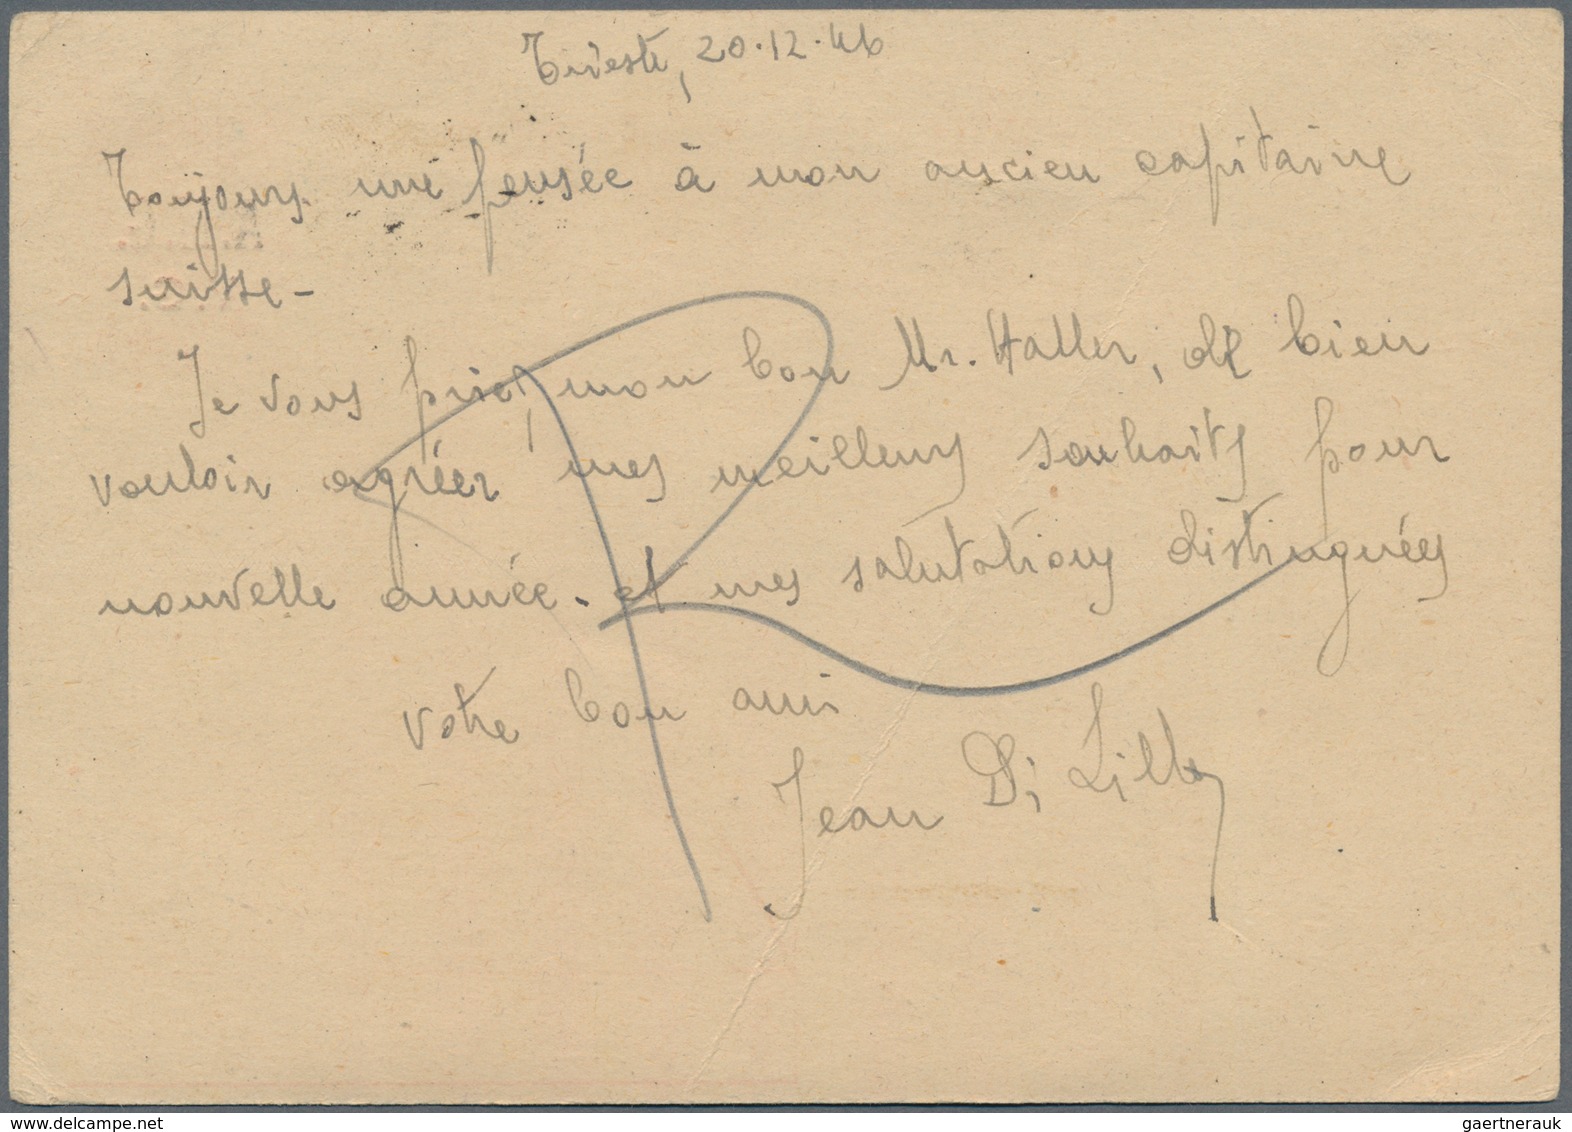 Trieste, 20.12.46
Toujours une pensée à mon ancien capitaine
suisse -
Je vous prie, mon bon Mr. Haller, de bien
vouloir agréer mes meilleurs souhaits pour
nouvelle année. et mes salutations distinguées
votre bon ami
Jean Di Lilla
R
gaertnerauk